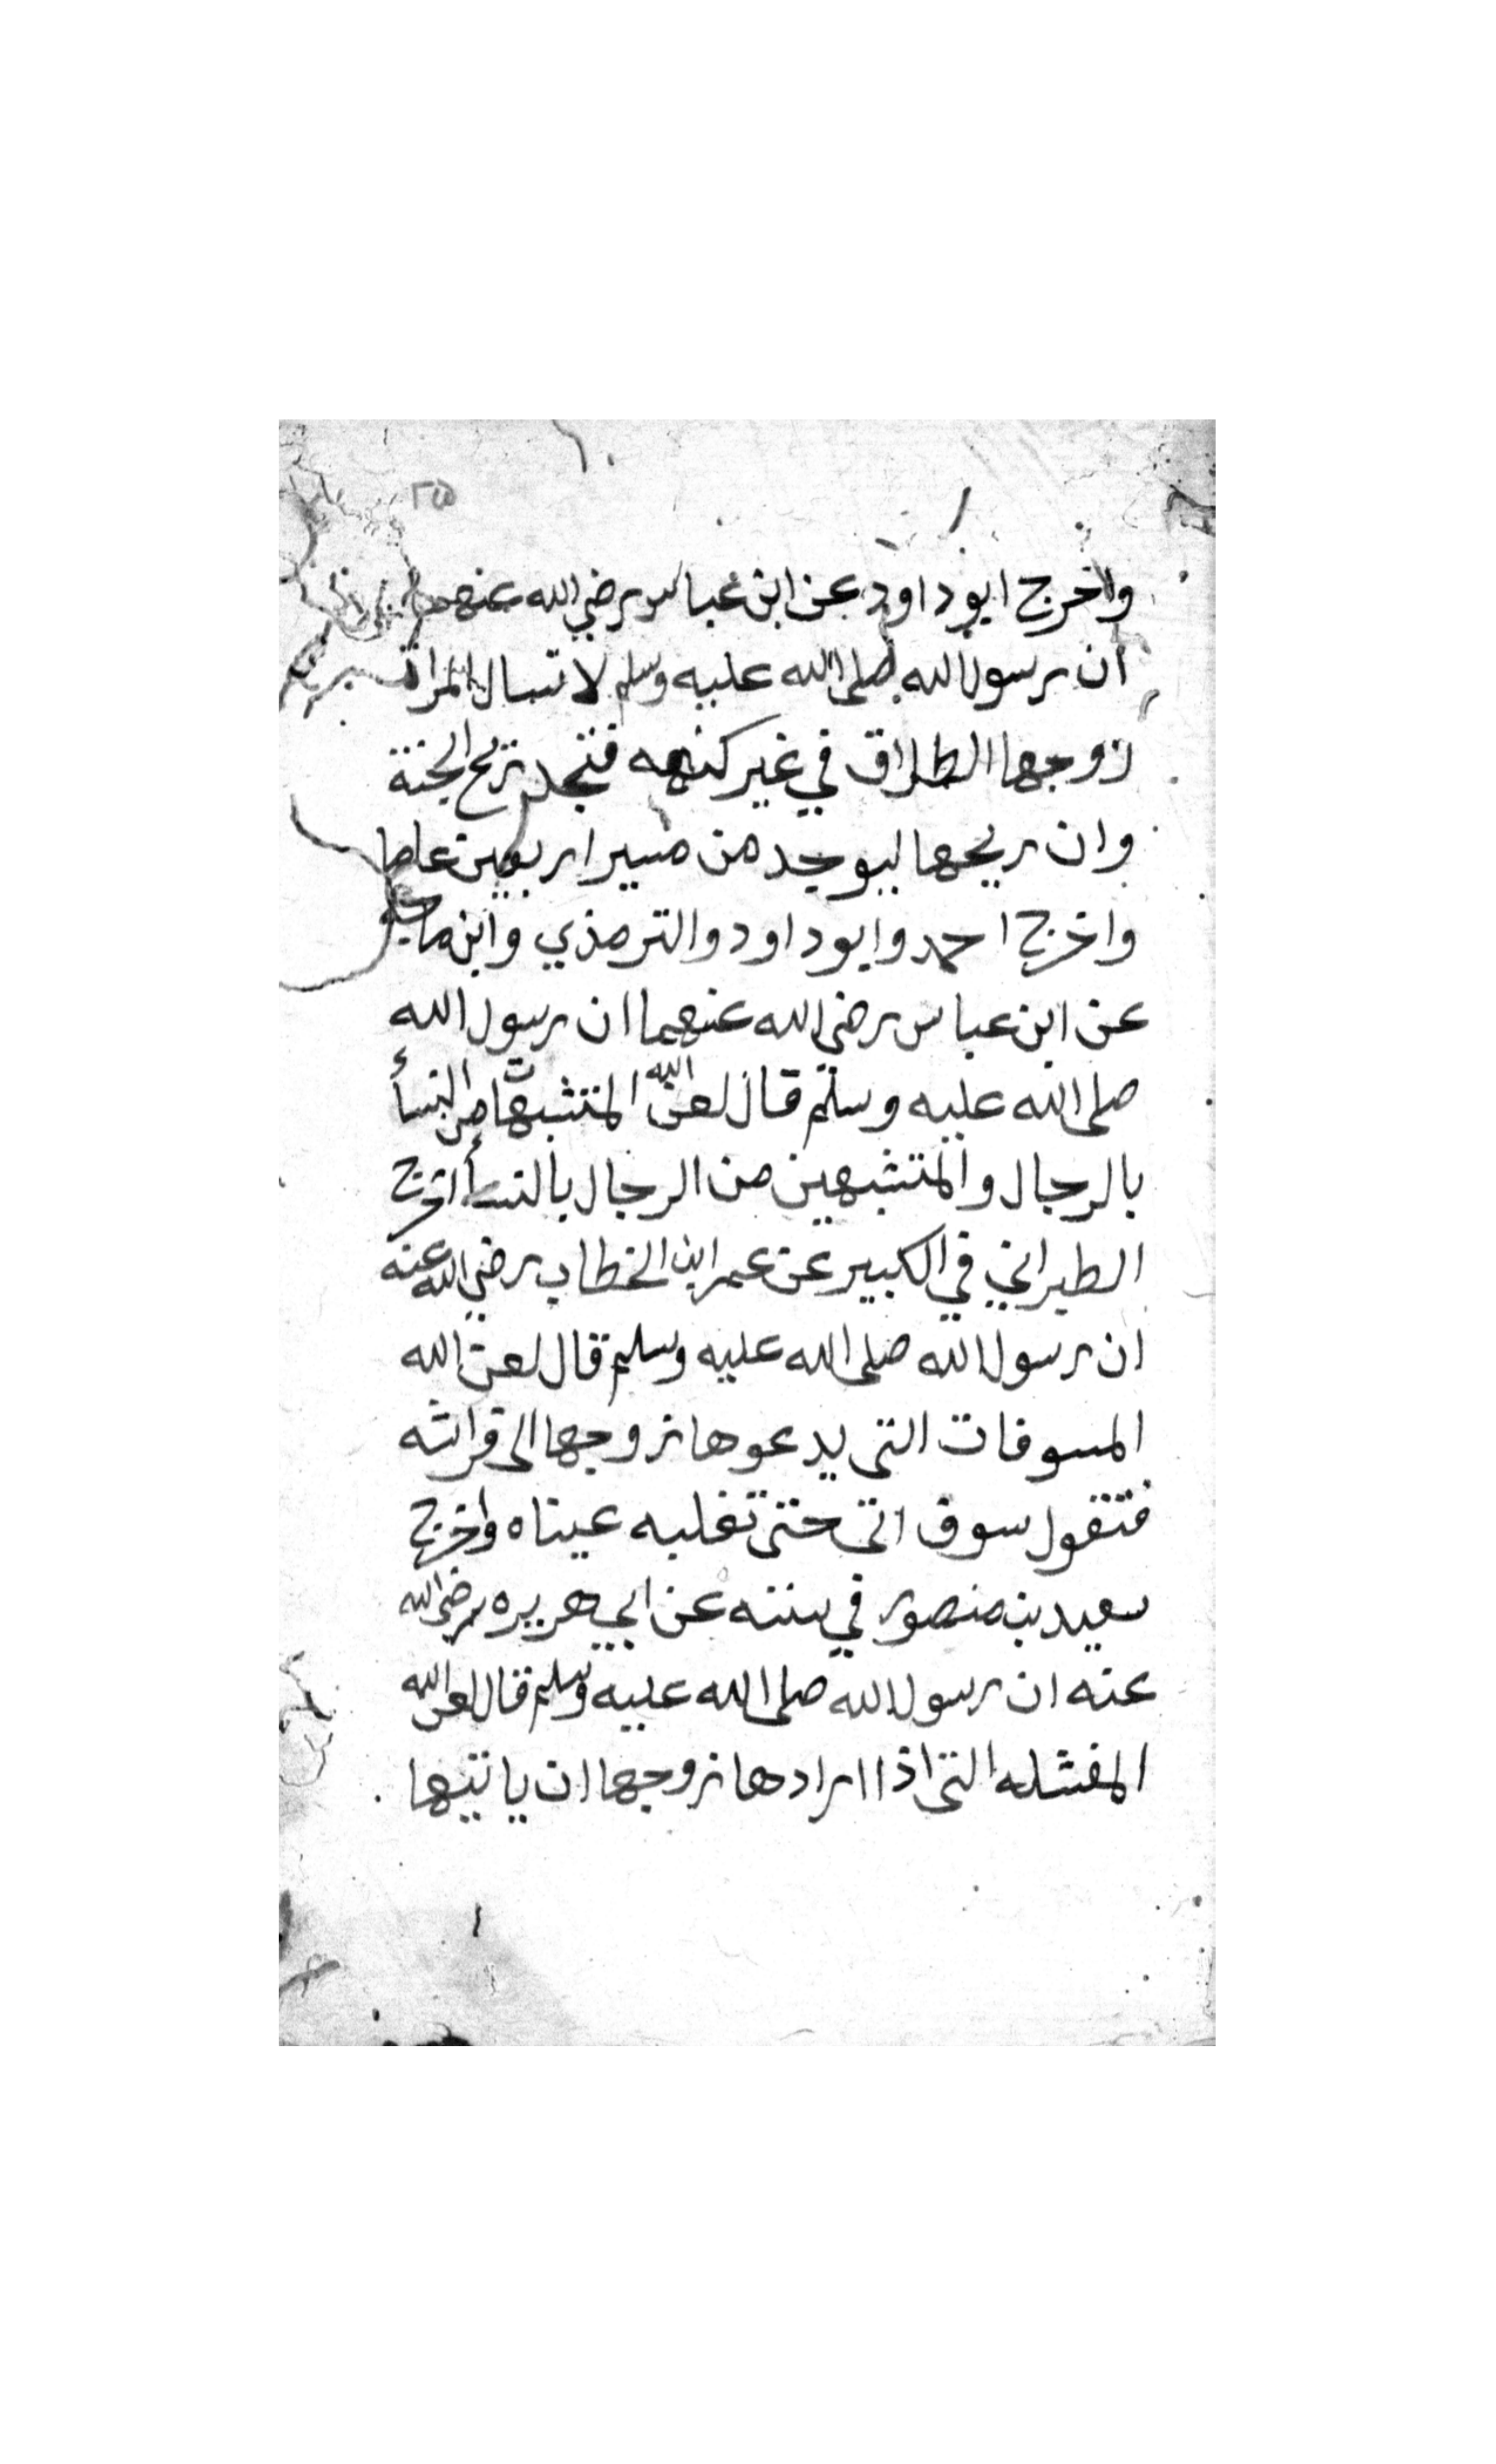 ٢٥
واخرج ابوداود عن ابن عباس رضي الله عنهما
ان رسول الله صلى الله عليه وسلم لا تسال المراة
زوجها الطلاق في غير كنهه فتجد ريح الجنة
وان ريحها ليوجد من مسير اربعين عاما
واخرج احمد وابوداود والترمذي وابن ماجه
عن ابن عباس رضي الله عنهما ان رسول الله
صلى الله عليه وسلم قال لعن الله المتشبهات من النسأ
بالرجال والمتشبهين من الرجال بالنسأ اخرج
الطبراني في الكبير عن عمر ابن الخطاب رضي الله عنه
ان رسول الله صلى الله عليه وسلم قال لعن الله
المسوفات التى يدعوها زوجها الى فراشه
فتقول سوف اتى حتى تغلبه عيناه واخرج
سعيد بن منصور في سننه عن ابي هريره رضي الله
عنه ان رسول الله صلى الله عليه وسلم قال لعن الله
المفشله التى اذا ارادها زوجها ان ياتيها